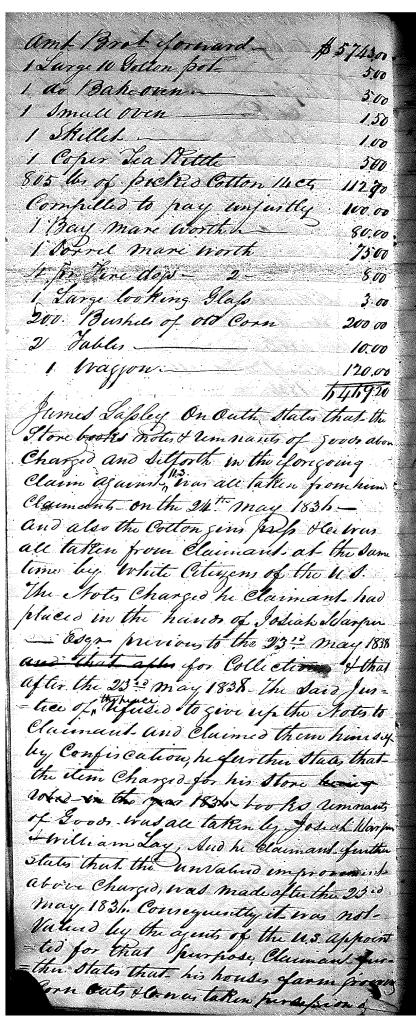 Amt Brot forward — $5743.00
1 Large 10 Gollon pot — 5 00
1 do Bake oven — 3 00
1 Small oven — 1.50
1 Skillet — 1.00
1 Coper Tea Kittle 5 00
805 lbs of picked Cotton 14 cts 112 70
Compelled to pay unjustly 100.00
1 Bay mare worth 80.00
1 Sorrel mare worth 75 00
4 pr Fire dogs — 2 — 8 00
1 Large looking Glass 3.00
200. Bushels of old Corn 200 00
2 Tables — 10.00
1 Waggon — 120.00
James Lasley On Oath States that the
Store books notes & remnants of goods above
Charged and Setforth in the foregoing
Claim against U.S. was all taken from him
Claimant on the 24th May 1838 —
and also the Cotton gin press &c was
all taken from Claimant at the same
time by White Citizens of the U.S.
The Notes Charged he Claimant had
placed in the hands of Josiah Harper
— Esqr previous to the 23rd May 1838
and that after for Collection & that
after the 23rd May 1838. The said Jus-
tice of the peace refused to give up the Notes to
Claimant and Claimed them himself
by Confiscation, he further states that
the item Charged for his Store being
in the year 1838 books remnants
of Goods was all taken by Josiah Harper
& William Lay, And he Claimant further
states that the unvalued improvements
above Charged was made after the 23rd
May 1836 Consequently it was not
Valued by the agents of the U.S. appoin
ted for that purpose Claimant fur-
ther states that his houses farm growing
Corn Oats &c was taken possession of